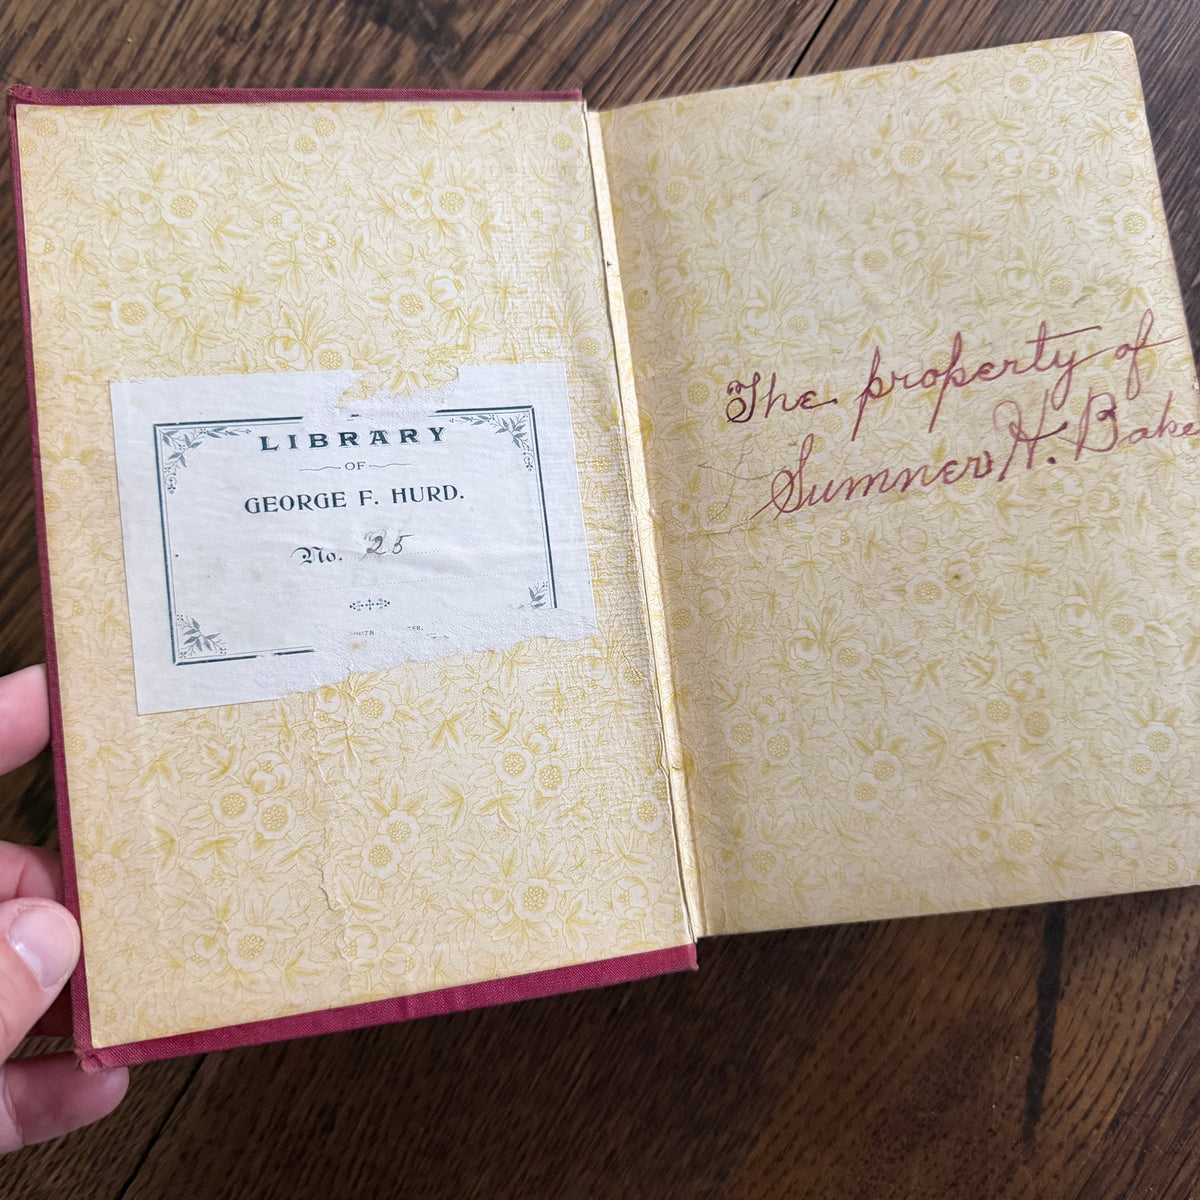 LIBRARY
OF
GEORGE F. HURD.
No. 25
The property of
Sumner H. Bake